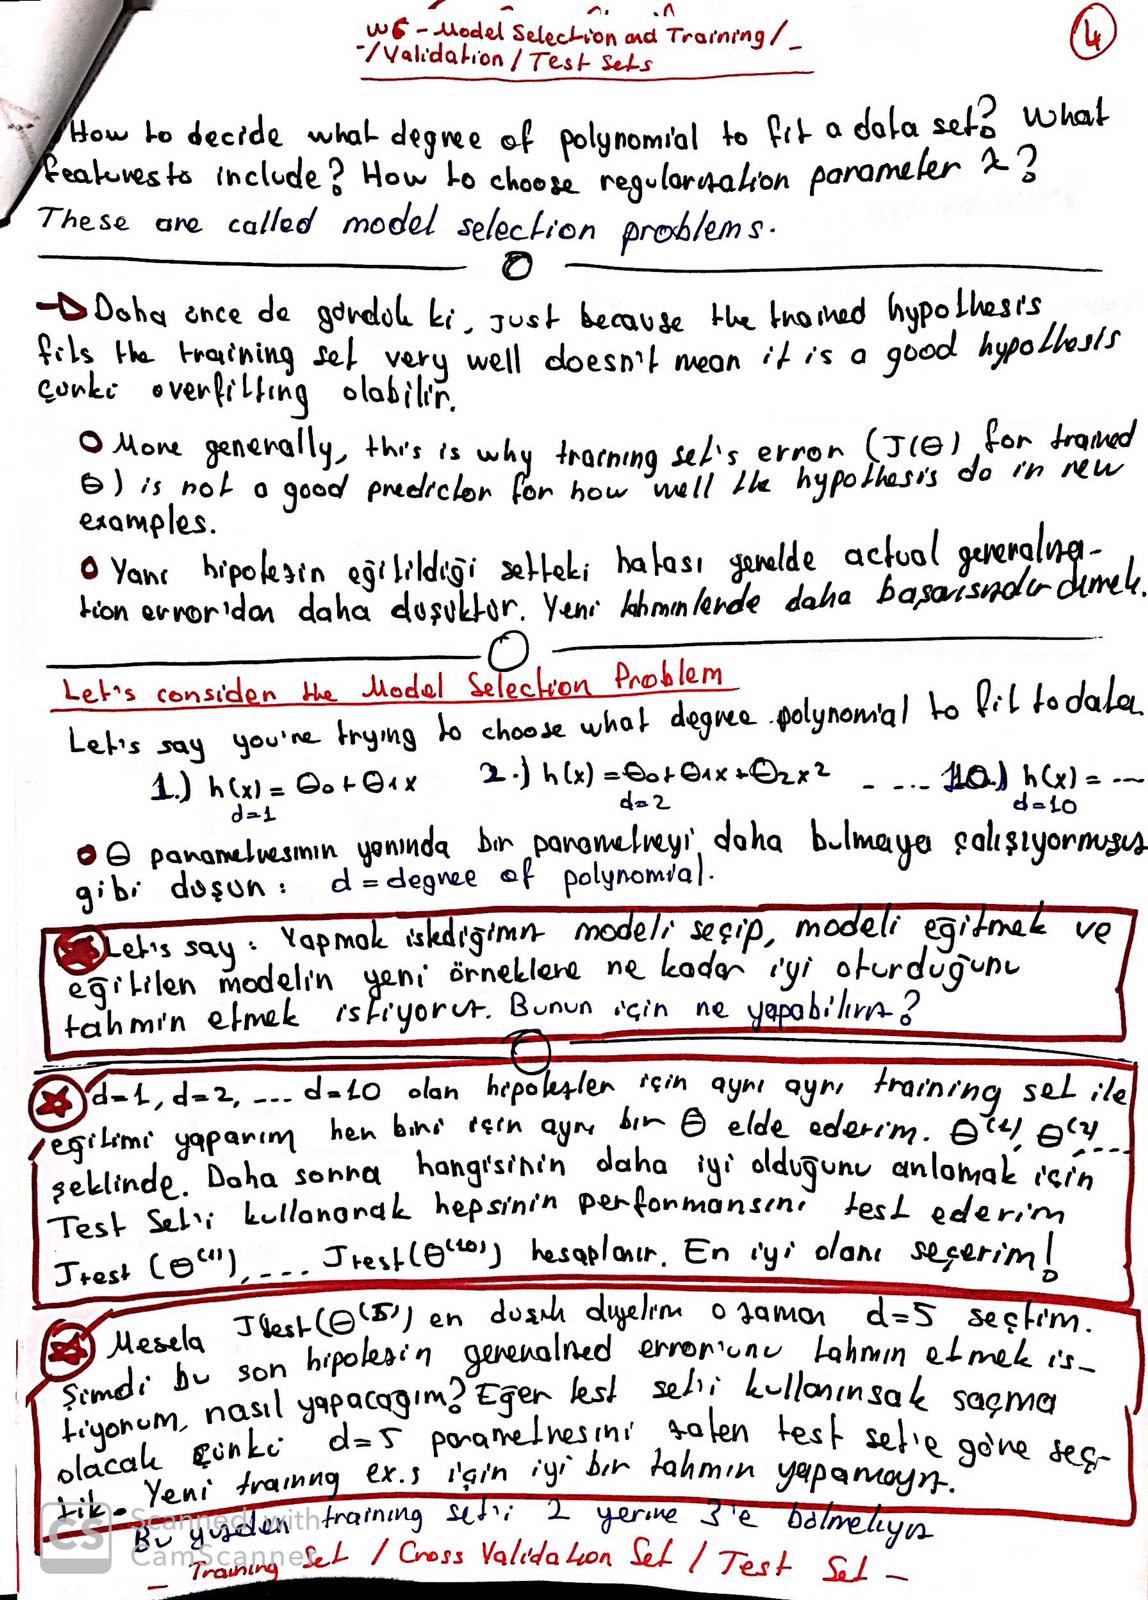 W6 - Model Selection and Training/-
-/Validation/Test Sets
4
How to decide what degree of polynomial to fit a data set? What
features to include? How to choose regularization parameter λ?
These are called model selection problems.
→ Daha önce de gördük ki, just because the trained hypothesis
fits the training set very well doesn't mean it is a good hypothesis
çünkü overfitting olabilir.
o More generally, this is why training set's error (J(θ) for trained
θ) is not a good predictor for how well the hypothesis do in new
examples.
o Yani hipotezin eğitildiği setteki hatası genelde actual generaliza-
tion error'dan daha düşüktür. Yeni tahminlerde daha başarısızdır demek.
Let's consider the Model Selection Problem
Let's say you're trying to choose what degree polynomial to fit to data
1.) h(x) = θ0 + θ1x 2.) h(x) = θ0 + θ1x + θ2x² - ... 10.) h(x) = ---
d=1 d=2 d=10
o θ parametresinin yanında bir parametreyi daha bulmaya çalışıyormuşuz
gibi düşün: d = degree of polynomial.
Let's say: Yapmak istediğimiz modeli seçip, modeli eğitmek ve
eğitilen modelin yeni örneklere ne kadar iyi oturduğunu
tahmin etmek istiyoruz. Bunun için ne yapabiliriz?
d=1, d=2, --- d=10 olan hipotezler için ayrı ayrı training set ile
eğitimi yaparım her biri için ayrı bir θ elde ederim. θ⁽¹⁾, θ⁽²⁾, ----
şeklinde. Daha sonra hangisinin daha iyi olduğunu anlamak için
Test Set'i kullanarak hepsinin performansını test ederim
Jtest (θ⁽¹⁾), --- Jtest(θ⁽¹⁰⁾) hesaplanır. En iyi olanı seçerim!
Mesela Jtest(θ⁽⁵⁾) en düşük diyelim o zaman d=5 seçtim.
Şimdi bu son hipotezin generalized error'unu tahmin etmek is-
tiyorum, nasıl yapacağım? Eğer test set'i kullanırsak saçma
olacak çünkü d=5 parametresini zaten test set'e göre seç-
tik - Yeni training ex.s için iyi bir tahmin yapamayız.
Bu yüzden training set'i 2 yerine 3'e bölmeliyiz
- Training Set / Cross Validation Set / Test Set -
CS Scanned with
CamScanner